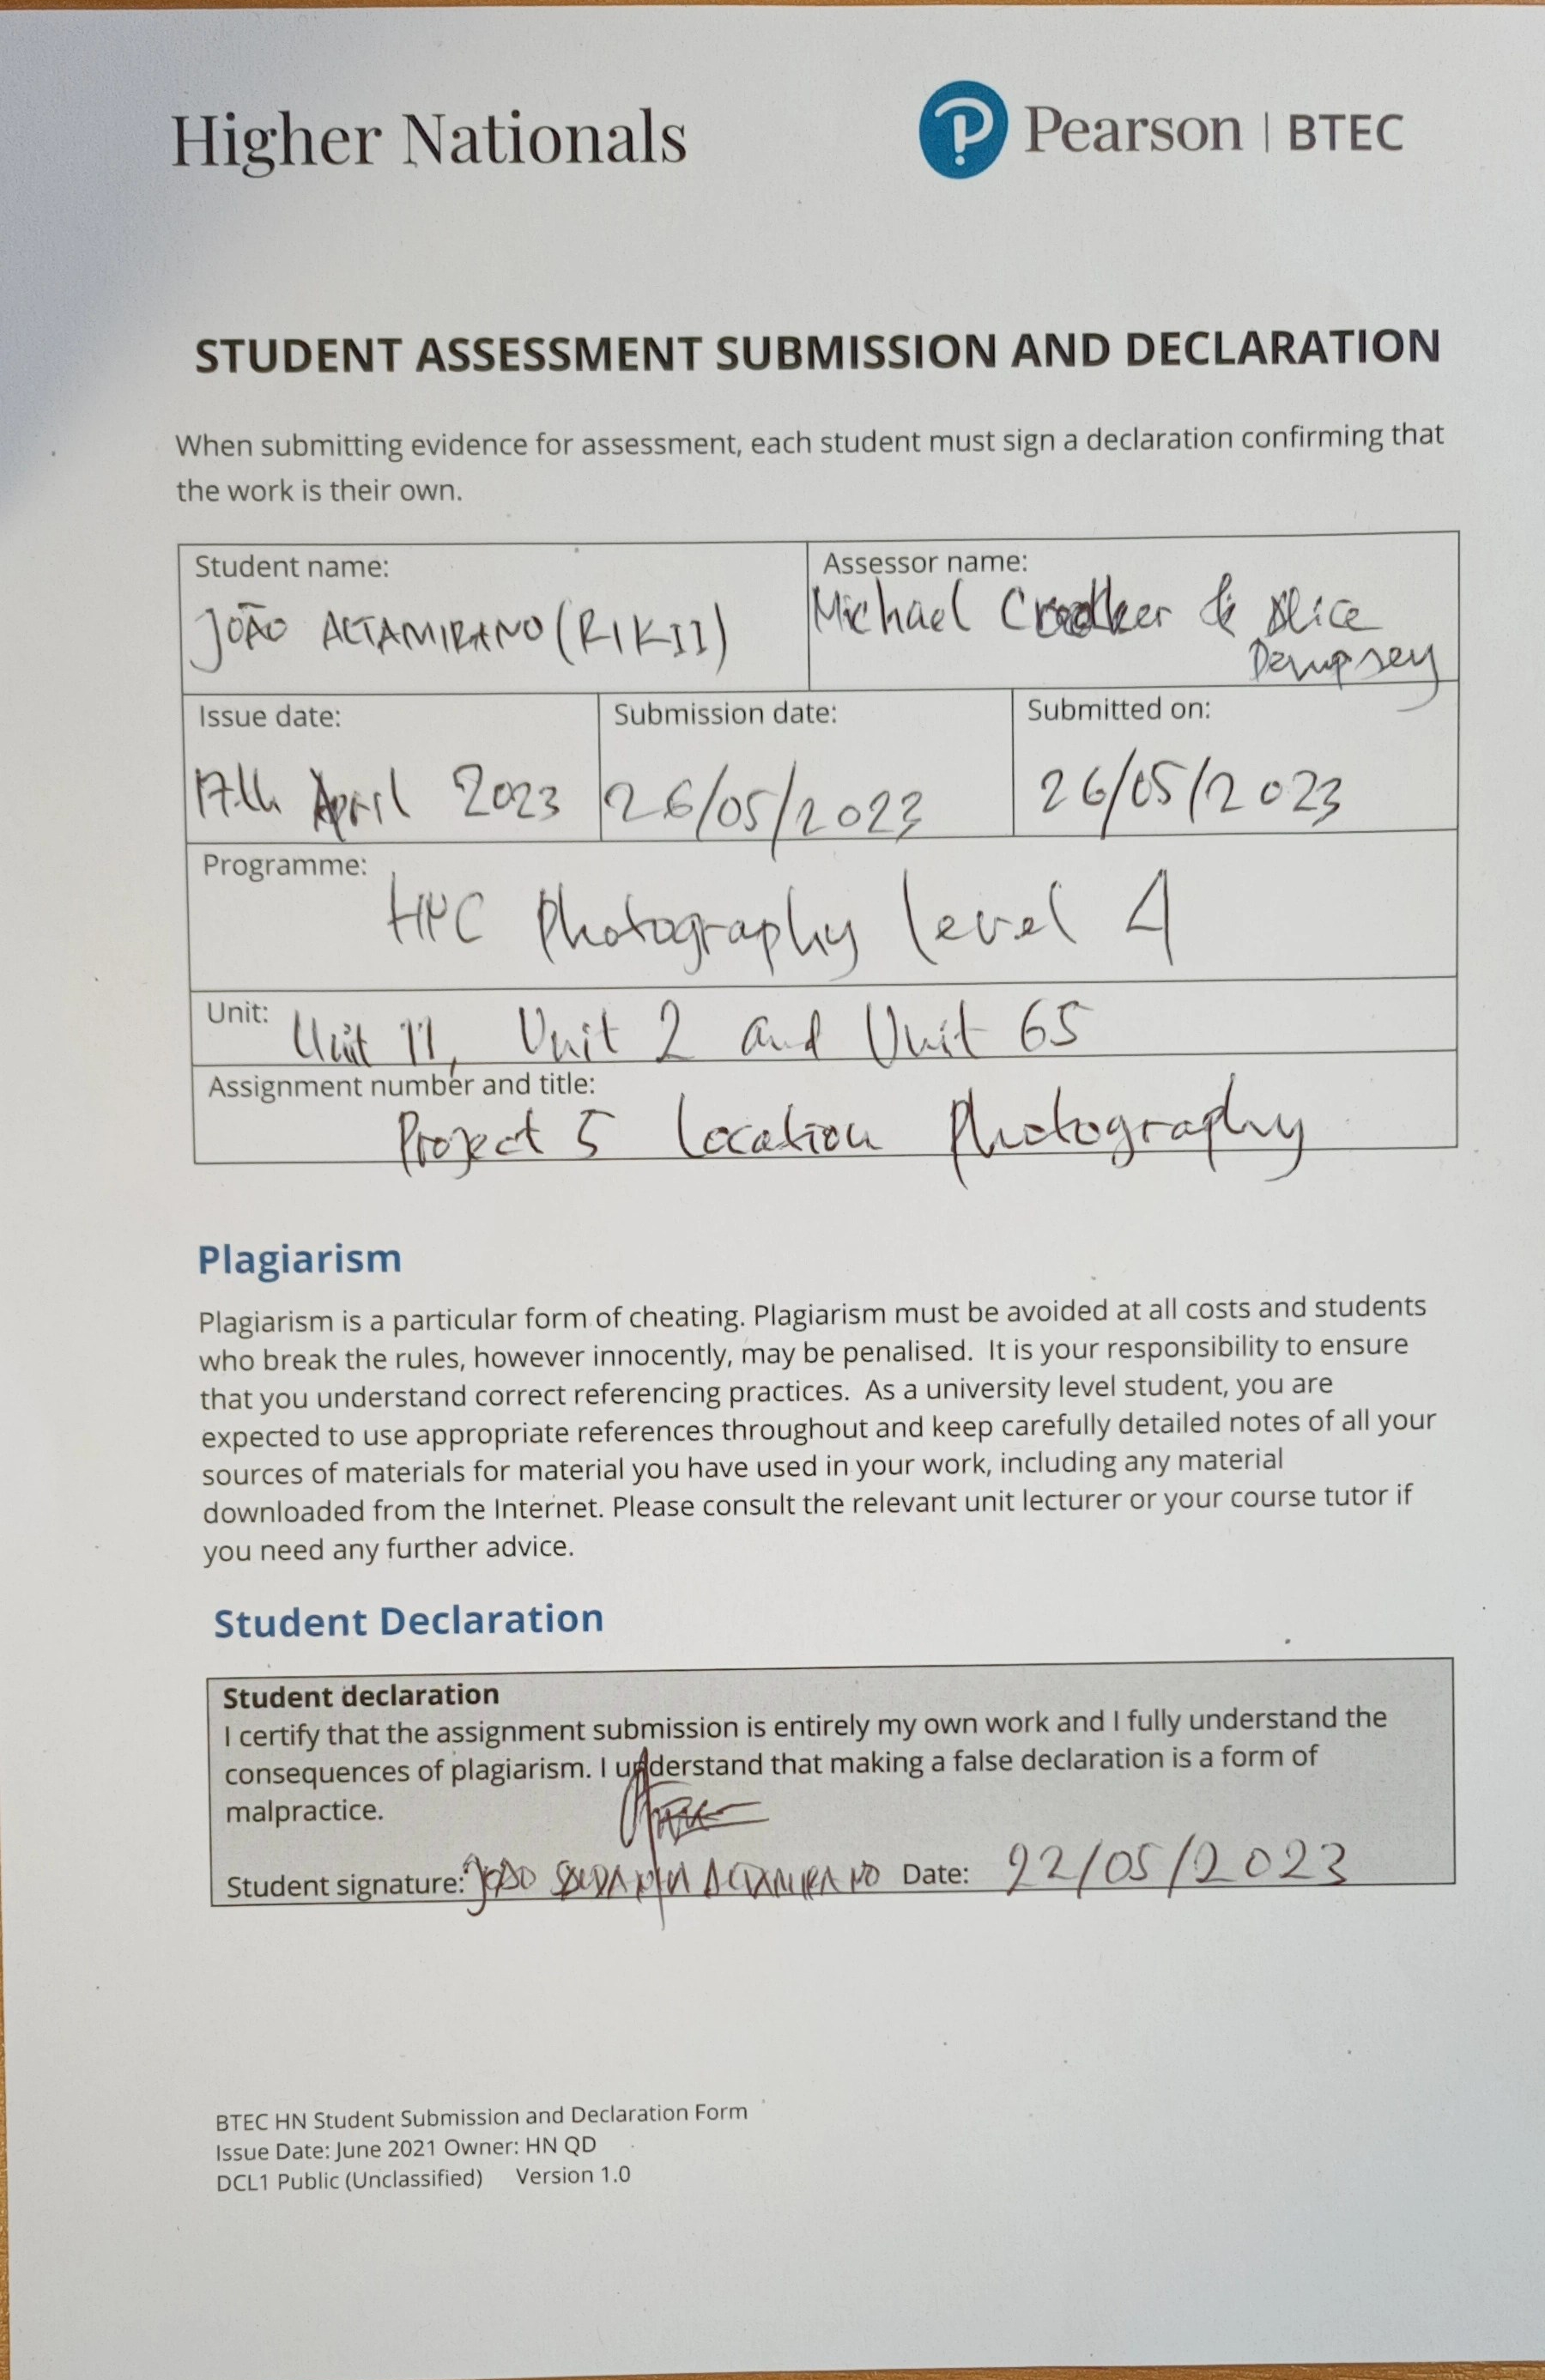 Higher Nationals
Pearson | BTEC
STUDENT ASSESSMENT SUBMISSION AND DECLARATION
When submitting evidence for assessment, each student must sign a declaration confirming that
the work is their own.
Student name:
JOÃO ALTAMIRANO (RIKII)
Assessor name:
Michael & Alice
Dempsey
Issue date:
17th April 2023
Submission date:
26/05/2023
Submitted on:
26/05/2023
Programme:
HNC Photography level 4
Unit: Unit 11, Unit 2 and Unit 65
Assignment number and title:
Project 5 Location Photography
Plagiarism
Plagiarism is a particular form of cheating. Plagiarism must be avoided at all costs and students
who break the rules, however innocently, may be penalised. It is your responsibility to ensure
that you understand correct referencing practices. As a university level student, you are
expected to use appropriate references throughout and keep carefully detailed notes of all your
sources of materials for material you have used in your work, including any material
downloaded from the Internet. Please consult the relevant unit lecturer or your course tutor if
you need any further advice.
Student Declaration
Student declaration
I certify that the assignment submission is entirely my own work and I fully understand the
consequences of plagiarism. I understand that making a false declaration is a form of
malpractice.
Student signature: JOÃO ALTAMIRANO Date: 22/05/2023
BTEC HN Student Submission and Declaration Form
Issue Date: June 2021 Owner: HN QD
DCL1 Public (Unclassified) Version 1.0